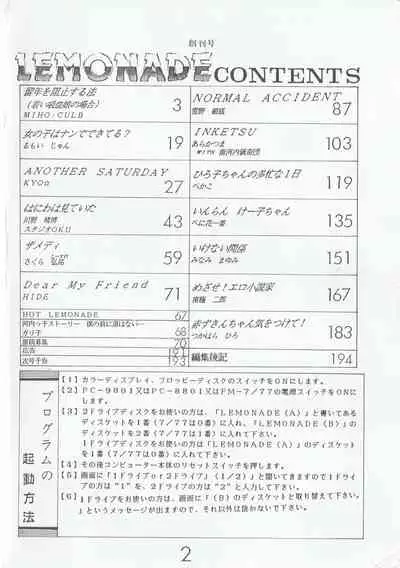 創刊号
LEMONADE CONTENTS
留年を阻止する法
(若い吸血娘の場合)
MIHO：CULB 3
女の子はナンでできてる？
るもい じゅん 19
ANOTHER SATURDAY
KYO☆ 27
はにわは見ていた
川野 晴博
スタジオOKU 43
ザメディ
さくら 弘拓 59
Dear My Friend
HIDE 71
HOT LEMONADE 67
河内っ子ストーリー 僕の前に道はない…
ガリ子 68
原稿募集 70
広告 191
次号予告 193
NORMAL ACCIDENT
87
INKETSU
あらかつま
銀河内鎮魂団 103
ひろ子ちゃんの多忙な1日
べかこ 119
いんらん けー子ちゃん
べに花一番 135
いけない関係
みなみ まゆみ 151
めざせ！エロ小説家
二郎 167
赤ずきんちゃん気をつけて！
つかはら ひろ 183
編集後記 194
プログラムの
起動方法
【1】カラーディスプレイ、フロッピーディスクのスイッチをONにします。
【2】PC-9801又はPC-8801又はFM-7/77の電源スイッチをONに
します。
【3】2ドライブディスクをお使いの方は、「LEMONADE(A)」と書いてある
ディスケットを1番(7/77は0番)に入れ、「LEMONADE(B)」の
ディスケットを2番(7/77は1番)に入れて下さい。
1ドライブディスクをお使いの方は「LEMONADE(A)」のディスケット
を1番(7/77は0番)に入れて下さい。
【4】その後コンピューター本体のリセットスイッチを押します。
【5】画面に「1ドライブor2ドライブ」(1/2)」と聞いてきますので1ドライ
ブの方は"1"を、2ドライブの方は"2"と入力して下さい。
【6】1ドライブをお使いの方は、画面に「(B)のディスケットと取り替えて下さい。
」というメッセージが出ますので、それ以外は抜かないで下さい。
2